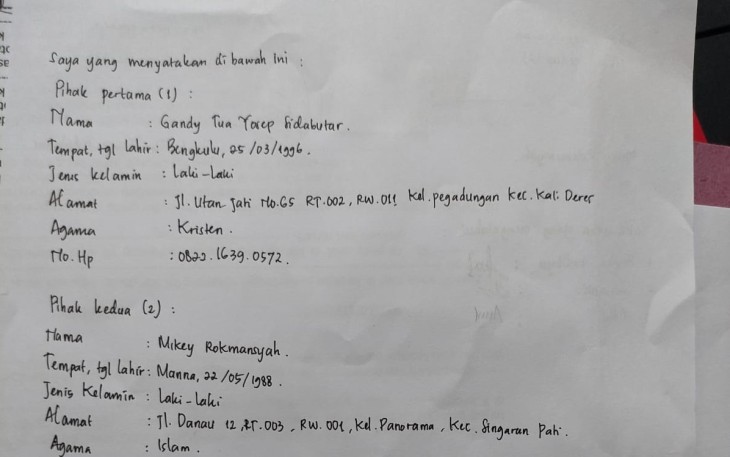 Saya yang menyatakan di bawah ini :
Pihak pertama (1) :
Nama : Gandy Tua Yosep Sidabutar.
Tempat, tgl lahir : Bengkulu, 25/03/1996.
Jenis kelamin : Laki-Laki
Alamat : Jl. Utan Jati No.65 RT.002, RW.011 Kel.pegadungan Kec.Kali Deres
Agama : Kristen.
No. Hp : 0822.1639.0572.
Pihak kedua (2) :
Nama : Mikey Rokmansyah.
Tempat, tgl lahir : Manna, 22/05/1988.
Jenis Kelamin : Laki-laki
Alamat : Jl. Danau 12, RT.003, RW.001, Kel.Panorama, Kec.Singaran Pati.
Agama : Islam.